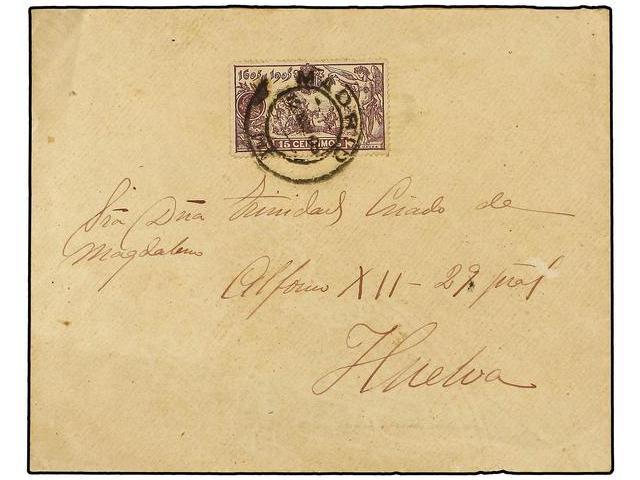 1605 1905
MADRID
15 CENTIMOS
Sra Dña Trinidad Criado de
Magdaleno
Alfonso XII - 29 pral
Huelva